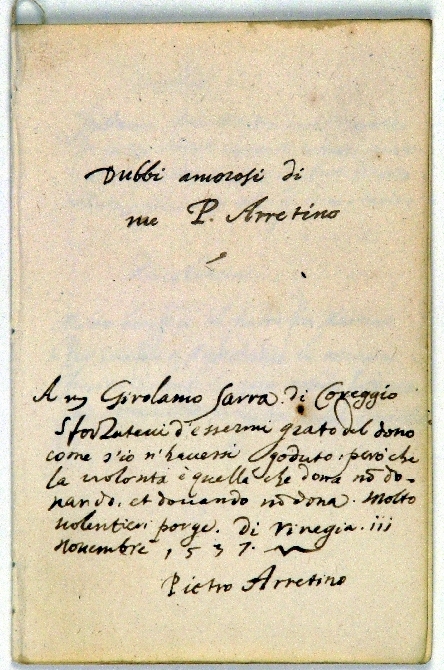 Dubbi amorosi di
me P. Arretino
A m Girolamo Sarra di Coreggio
Sforzatevi d'essermi grato del dono
come s'io n'havessi goduto: però che
la volontà è quella che dona nō do-
nando, et donando nō dona. Molto
volentier porge. di Vinegia. iii
Novembre 1537.
Pietro Arretino